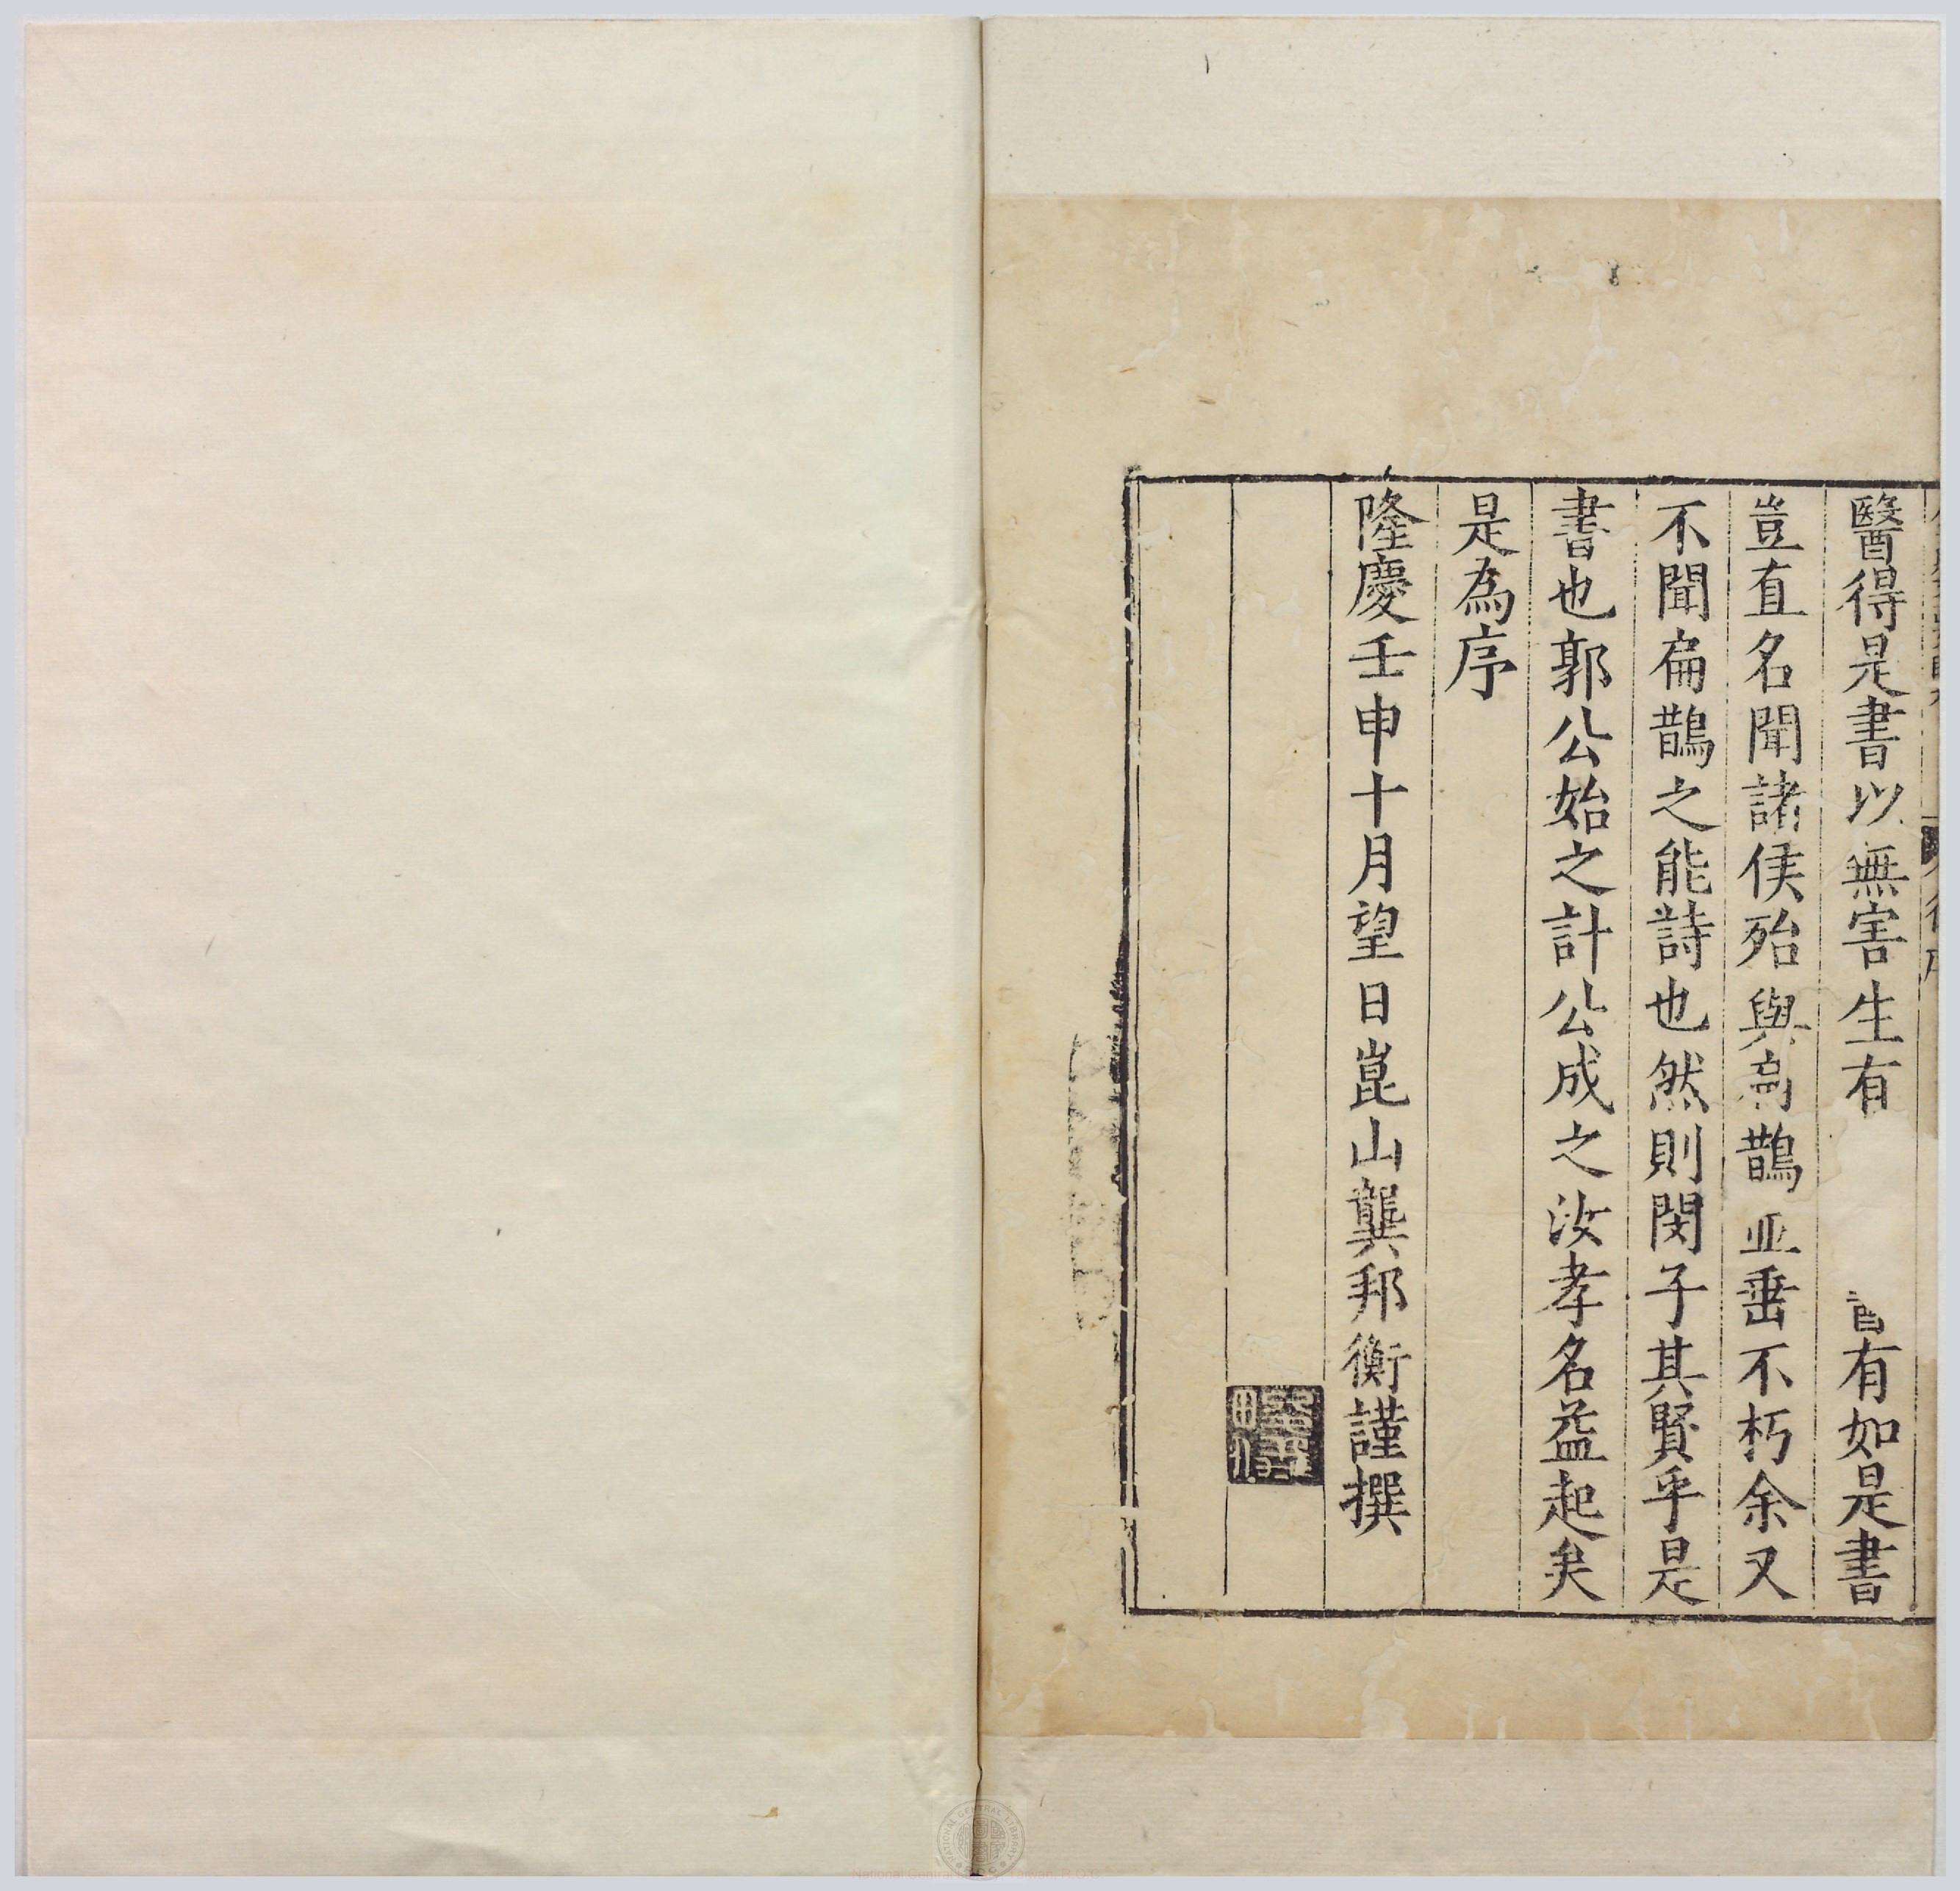 醫得是書以無害生有有如是書
豈直名聞諸侯殆與高鵲並垂不朽余又
不聞扁鵲之能詩也然則閔子其賢乎是
書也郭公始之計公成之汝孝名益起矣
是為序
隆慶壬申十月望日崑山龔邦衡謹撰